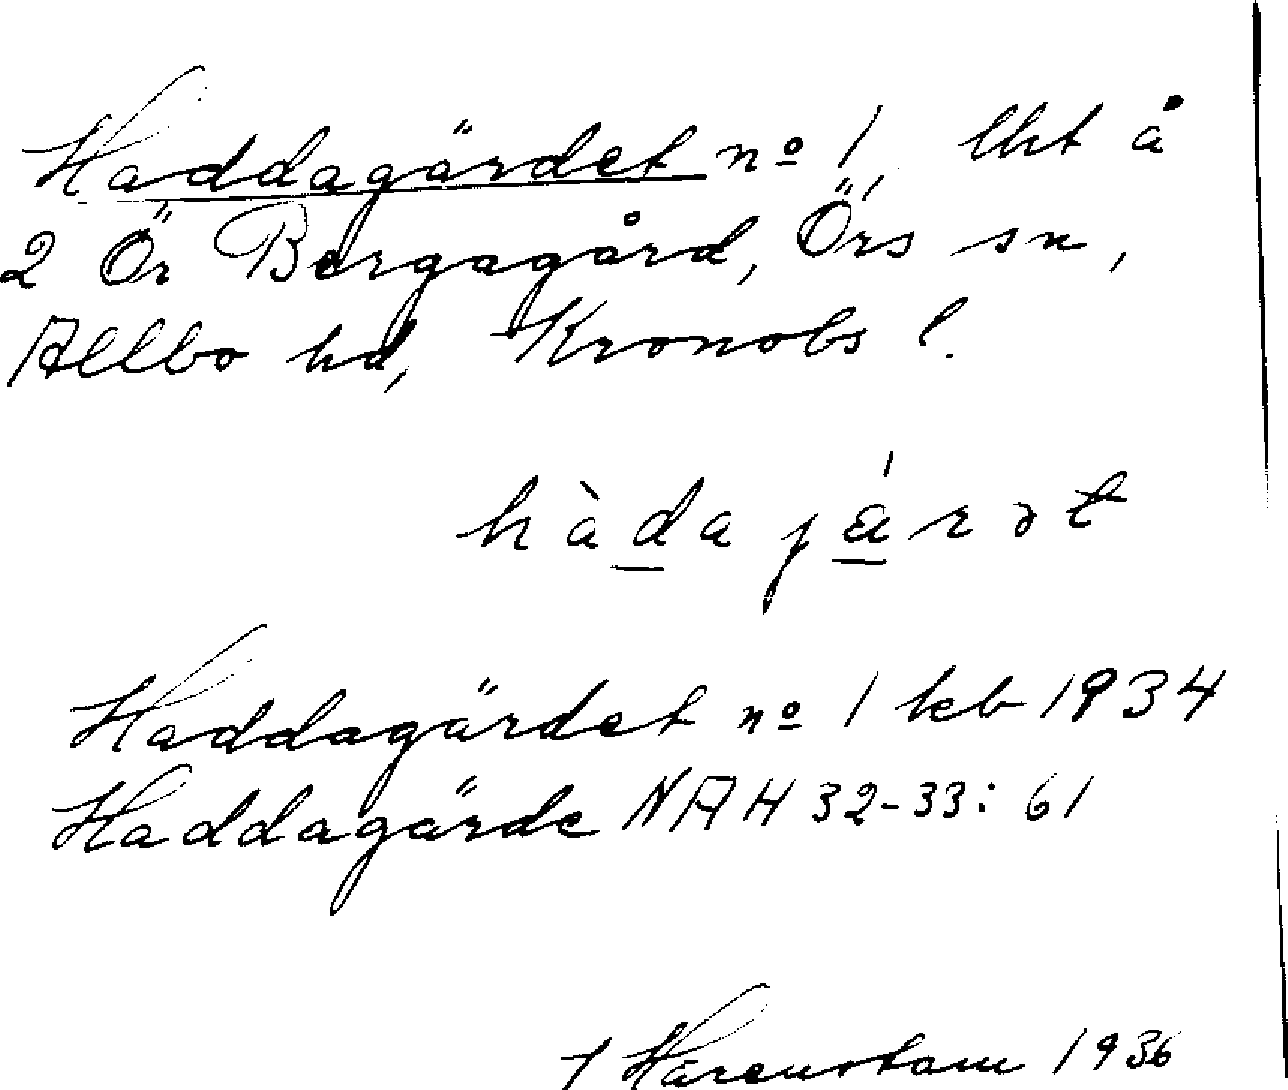 Haddagärdet nº 1, lht å
2 Ör Bergagård, Örs sn,
Allbo hd, Kronobs l.
hàdajä́rət
Haddagärdet nº 1 kb 1934
Haddagärde NAH 32-33: 61
Härenstam 1936